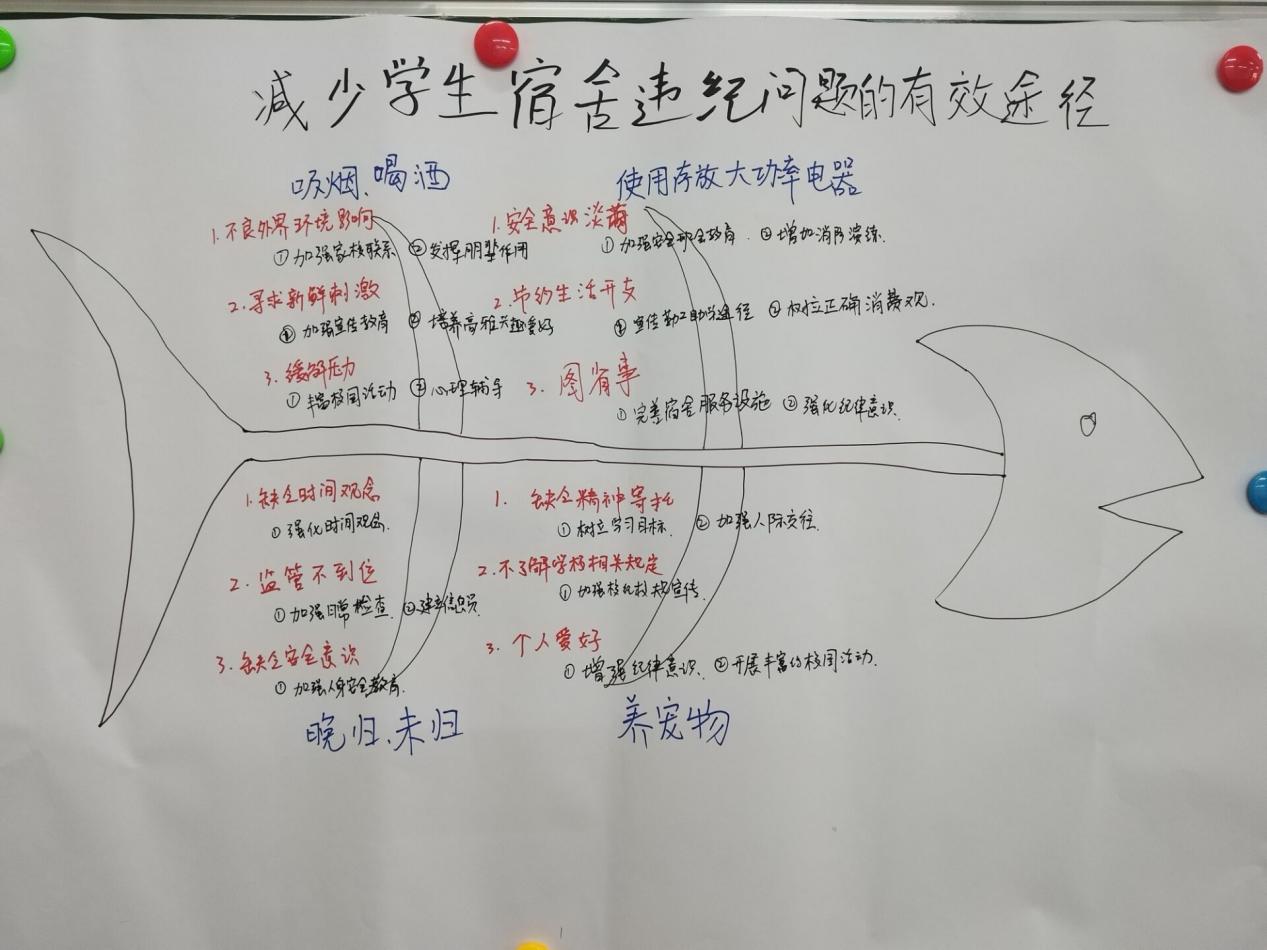 减少学生宿舍违纪问题的有效途径
吸烟、喝酒
1.不良外界环境影响
①加强家校联系 ②发挥朋辈作用
2.寻求新鲜刺激
①加强宣传教育 ②培养高雅兴趣爱好
3.缓解压力
①丰富校园活动 ②心理辅导
使用存放大功率电器
1.安全意识淡薄
①加强安全教育. ②增加消防演练.
2.节约生活开支
①宣传勤工助学途径 ②树立正确消费观.
3.图省事
①完善宿舍服务设施 ②强化纪律意识.
1.缺乏时间观念
①强化时间观念.
2.监管不到位
①加强日常检查. ②建立信息员.
3.缺乏安全意识
①加强人身安全教育.
晚归、未归
1.缺乏精神寄托
①树立学习目标. ②加强人际交往.
2.不了解学校相关规定
①加强校纪校规宣传.
3.个人爱好
①增强纪律意识. ②开展丰富的校园活动.
养宠物